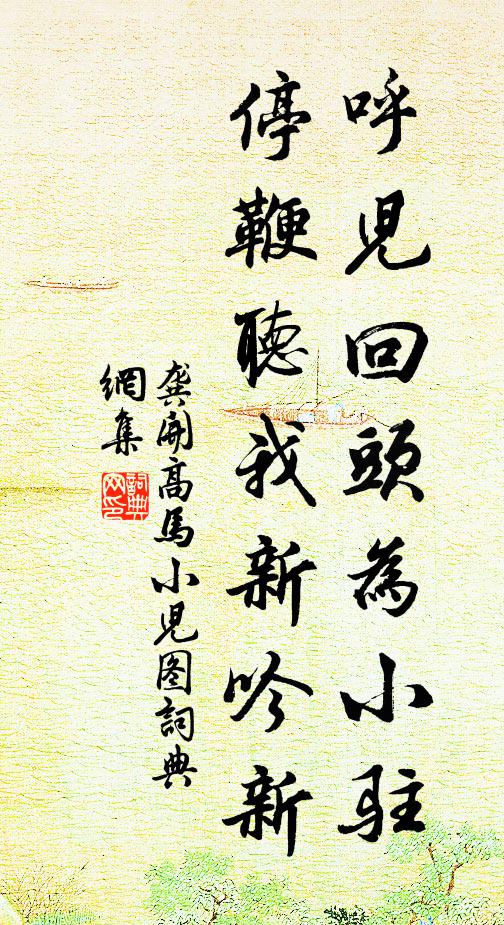 呼児回頭為小駐
停鞭聽我新吟新
龔開高馬小児图詞典
網集
詞典
网印